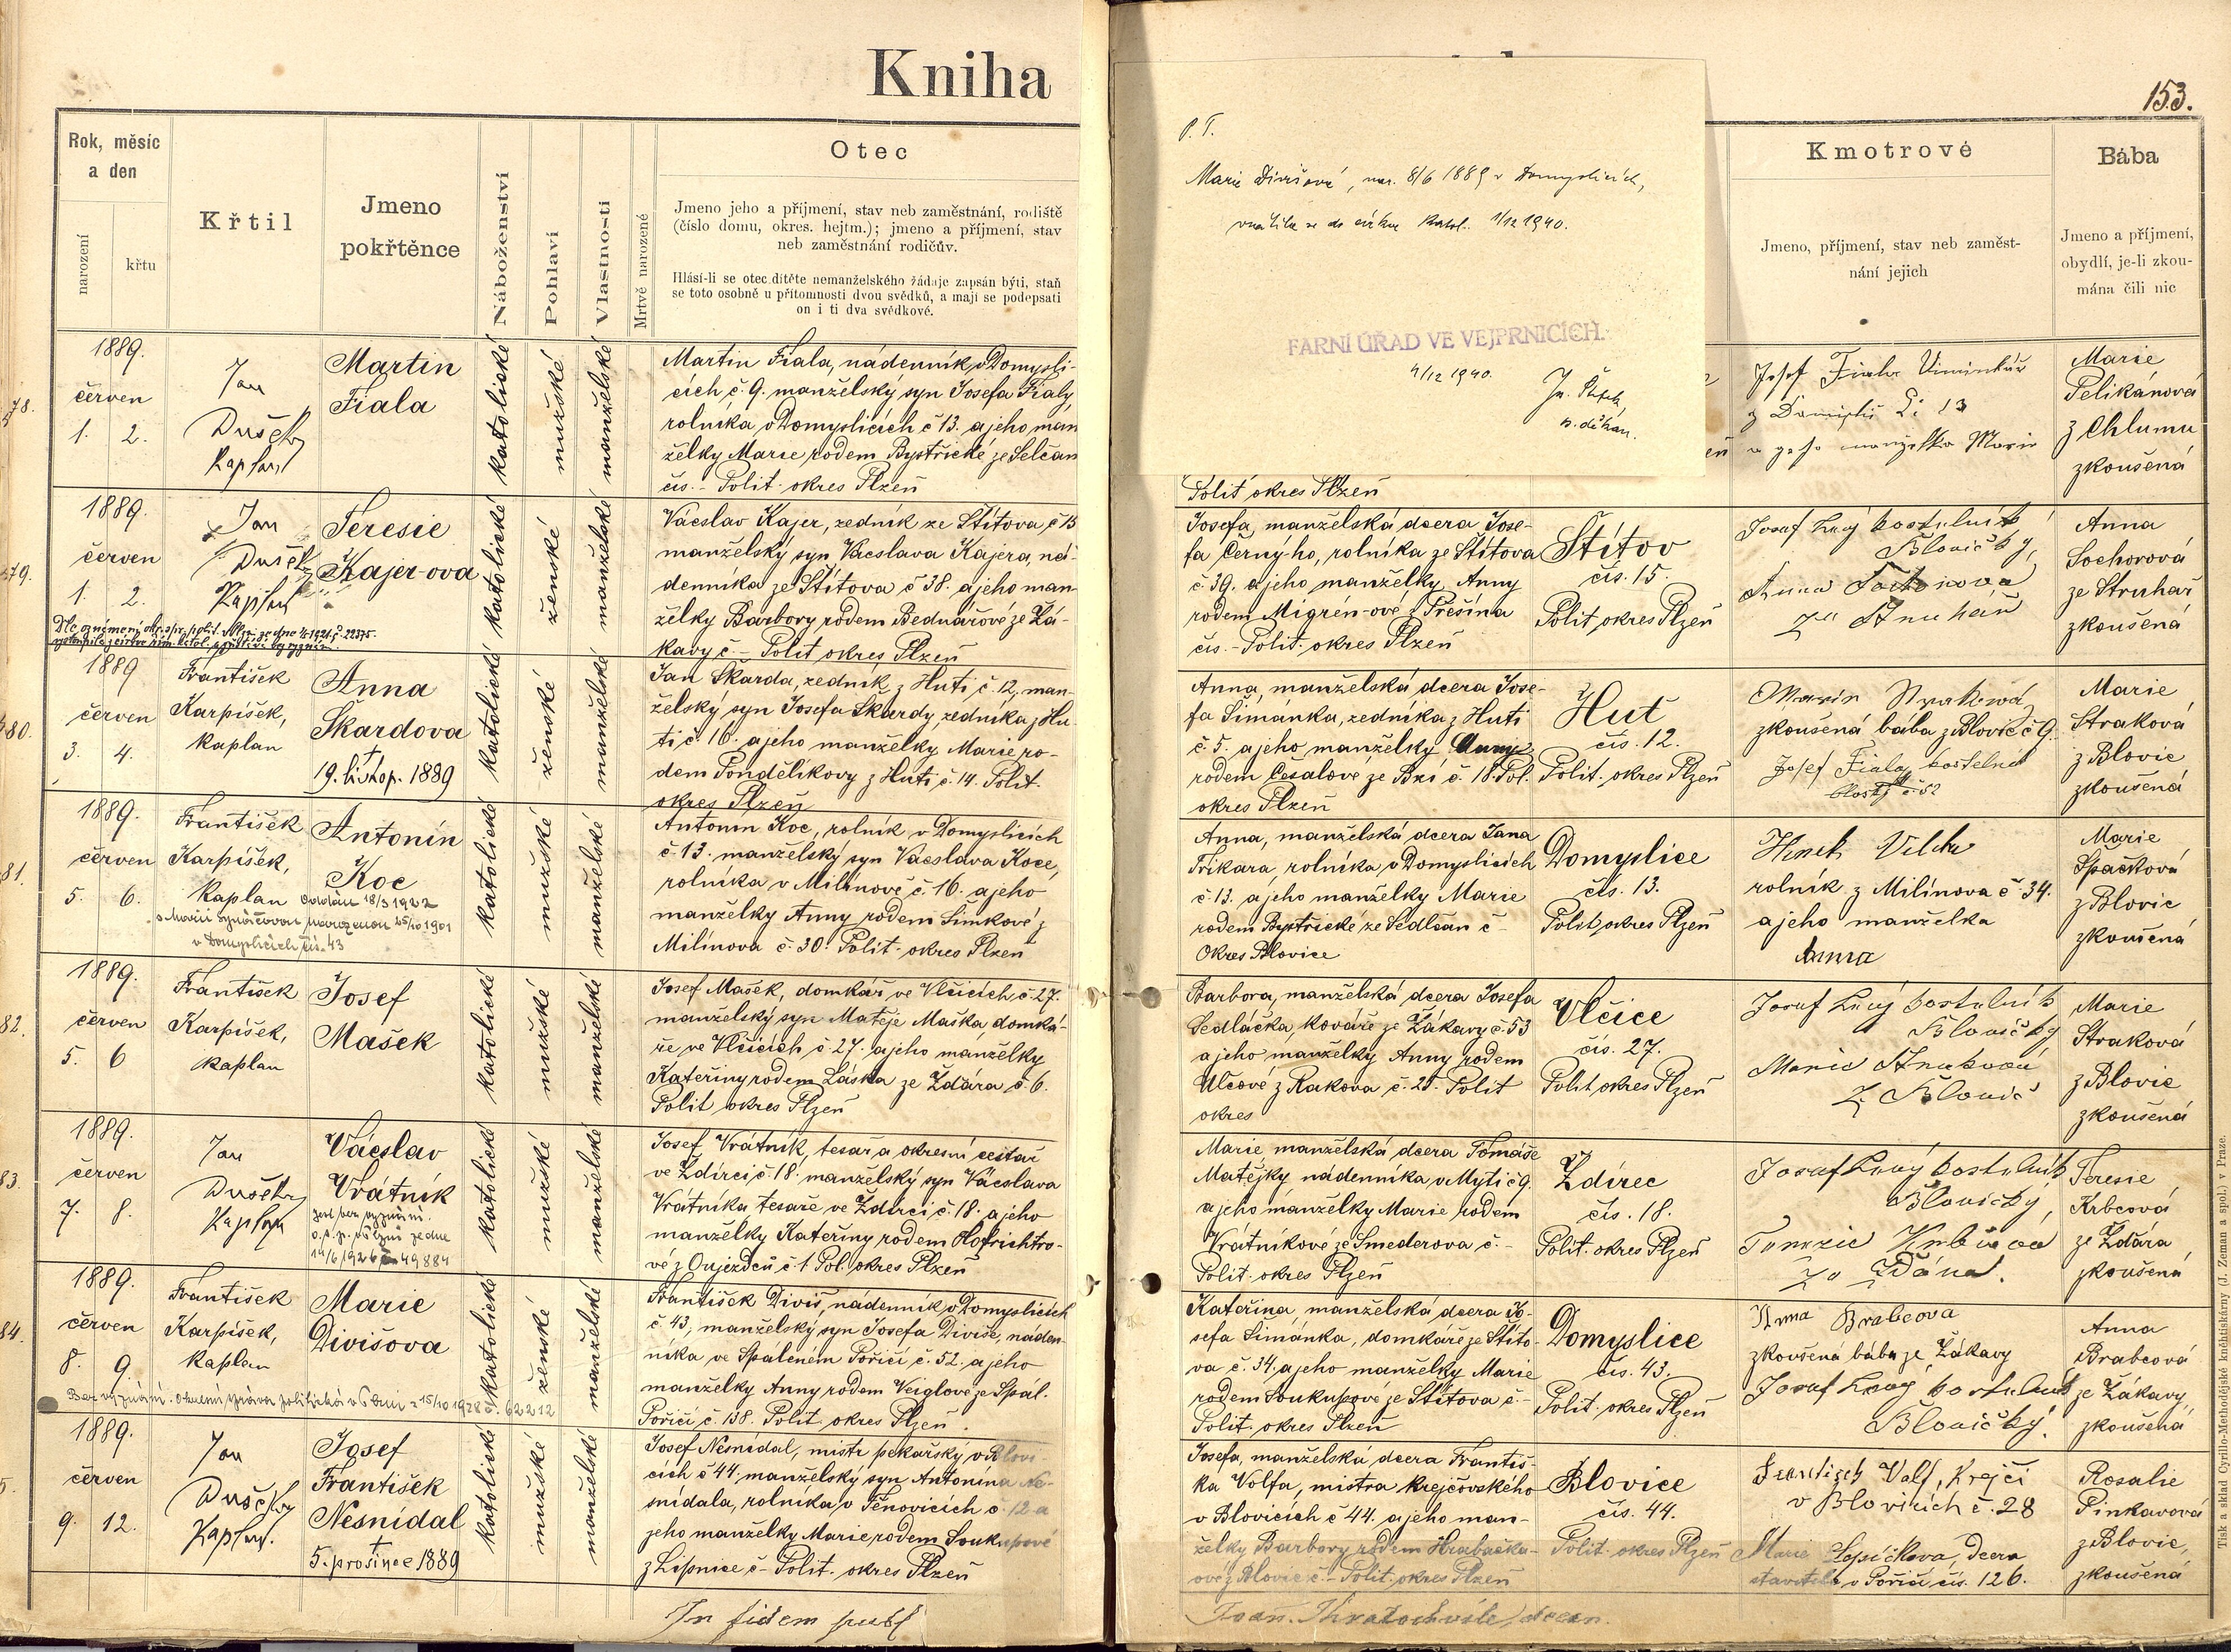 Kniha
153.
Rok, měsíc
a den
narození
křtu
Křtil
Jmeno
pokřtěnce
Náboženství
Pohlaví
Vlastnosti
Mrtvě narozené
Otec
Jmeno jeho a příjmení, stav neb zaměstnání, rodiště
(číslo domu, okres. hejtm.); jmeno a příjmení, stav
neb zaměstnání rodičův.
Hlásí-li se otec dítěte nemanželského žádaje zapsán býti, staň
se toto osobně u přítomnosti dvou svědků, a mají se podepsati
on i ti dva svědkové.
P. T.
Marie Divišová, nar. 8/6 1889 v Domyslicích,
vrátila se do církve katol. 1/12 1940.
FARNÍ ÚŘAD VE VEJPRNICÍCH.
4/12 1940.
b. děkan.
Kmotrové
Jmeno, příjmení, stav neb zaměst-
nání jejich
Bába
Jmeno a příjmení,
obydlí, je-li zkou-
mána čili nic
78.
1889.
červen
1. 2.
Jan
Dušek
Kaplan
Martin
Fiala
katolické
mužské
manželské
Martin Fiala, nádenník v Domysli-
cích č. 9. manželský syn Josefa Fialy,
rolníka v Domyslicích č 13. a jeho man
želky Marie rodem Bystřické ze Selčan
čís. - Polit. okres Plzeň
Polit okres Plzeň
Josef Fiala
13
a jeho manželka Marie
Marie
Pelikánová
z Chlumu
zkoušená
79.
1889.
červen
1. 2.
Jan
Dušek
Kaplan
Teresie
Kajer-ova
katolické
ženské
manželské
Václav Kajer, zedník ze Štítova č 15
manželský syn Vácslava Kajera, ná-
denníka ze Štítova č 38. a jeho man
želky Barbory rodem Bednářové ze Žá-
kavy č. - Polit okres Plzeň
Josefa, manželská dcera Jose-
fa Černý-ho, rolníka ze Štítova
č 39. a jeho manželky Anny
rodem Migrén-ové z Přešína
čís. - Polit. okres Plzeň
Štítov
čís. 15.
Polit okres Plzeň
Josef Lový kostelník
Blovický,
Anna Sochorová
ze Struhař
Anna
Sochorová
ze Struhař
zkoušená
80.
1889
červen
3. 4.
František
Karpíšek,
kaplan
Anna
Škardova
†
19. listop. 1889
katolické
ženské
manželské
Jan Škarda, zedník z Huti č. 12, man-
želský syn Josefa Škardy, zedníka z Hu-
ti č. 16. a jeho manželky Marie ro-
dem Pondělíkovy z Huti č. 14. Polit.
okres Plzeň
Anna, manželská dcera Jose-
fa Šimánka, zedníka z Huti
č 5. a jeho manželky Anny
rodem Češalové ze Bzí č. 18. Pol.
okres Plzeň
Huť
čís. 12.
Polit. okres Plzeň
Marie Straková
zkoušená bába z Blovic č 9.
Josef Fiala kostelník
č. 52
Marie
Straková
z Blovic
zkoušená
81.
1889.
červen
5. 6.
František
Karpíšek,
kaplan
Antonín
Koc
Oddán 18/3 1922
s Marií narozenou 25/10 1901
v Domyslicích čís. 43
katolické
mužské
manželské
Antonín Koc, rolník v Domyslicích
č. 13. manželský syn Vácslava Koce,
rolníka v Milínově č 16. a jeho
manželky Anny rodem Šimkové z
Milínova č. 30. Polit. okres Plzeň
Anna, manželská dcera Jana
Frikara, rolníka v Domyslicích
č. 13. a jeho manželky Marie
rodem Bystřické ze Sedlčan č -
Okres Blovice
Domyslice
čís. 13.
Polit okres Plzeň
Hynek
rolník z Milínova č 34.
a jeho manželka
Anna
Marie
Špačková
z Blovic
zkoušená
82.
1889.
červen
5. 6
František
Karpíšek,
kaplan
Josef
Mašek
katolické
mužské
manželské
Josef Mašek, domkář ve Vlčicích č. 27.
manželský syn Matěje Maška, domká-
ře ve Vlčicích č. 27. a jeho manželky
Kateřiny rodem Láska ze Ždára č. 6.
Polit okres Plzeň
Barbora, manželská dcera Josefa
Sedláčka, kováře ze Žákavy č. 53
a jeho manželky Anny rodem
Ulčové z Rakova č. 28. Polit
okres
Vlčice
čís. 27.
Polit okres Plzeň
Josef Lový kostelník
Blovický
Marie Straková
z Blovic
Marie
Straková
z Blovic
zkoušená
83.
1889.
červen
7. 8.
Jan
Dušek
Kaplan
Vácslav
Vrátník
jest bez vyznání.
14/6 1926 49884
katolické
mužské
manželské
Josef Vrátník, tesař a okresní cestář
ve Ždírci č 18. manželský syn Vácslava
Vrátníka tesaře ve Ždírci č. 18. a jeho
manželky Kateřiny rodem Hofrichtro-
vé z Oujezda č 1. Pol. okres Plzeň
Marie, manželská dcera Tomáše
Matějky, nádenníka v Mýti č 9.
a jeho manželky Marie rodem
Vrátníkové ze Smederova č. -
Polit. okres Plzeň
Ždírec
čís. 18.
Polit. okres Plzeň
Josef Lový kostelník
Blovický,
Terezie Krbcová
ze Ždára.
Teresie
Krbcová
ze Ždára
zkoušená
84.
1889.
červen
8. 9.
František
Karpíšek,
kaplan
Marie
Divišova
Bez vyznání. Okresní správa politická v Plzni z 15/10 1928 č. 62212
katolické
ženské
manželské
František Diviš, nádenník v Domyslicích
č. 43, manželský syn Josefa Diviše, náden-
níka ve Spáleném Poříčí č. 52. a jeho
manželky Anny rodem Veiglové ze Spál.
Poříčí č. 138. Polit. okres Plzeň.
Kateřina, manželská dcera Jo-
sefa Šimánka, domkáře ze Štíto-
va č. 34. a jeho manželky Marie
rodem Soukupové ze Štítova č. -
Polit. okres Plzeň
Domyslice
čís. 43.
Polit. okres Plzeň
Anna Brabcova
zkoušená bába ze Žákavy
Josef Lový kostelník
Blovický.
Anna
Brabcová
ze Žákavy,
zkoušená
1889.
červen
9. 12.
Jan
Dušek
Kaplan.
Josef
František
Nesnídal
†
5. prosince 1889
katolické
mužské
manželské
Josef Nesnídal, mistr pekařský v Blovi-
cích č 44. manželský syn Antonína Ne-
snídala, rolníka v Ženovicích č. 12 a
jeho manželky Marie rodem Soukupové
z Lipnice č - Polit. okres Plzeň
Josefa, manželská dcera Františ-
ka Volfa, mistra krejčovského
v Blovicích č 44. a jeho man-
želky Barbory rodem Hrabačka-
ové z Blovic č. - Polit. okres Plzeň
Blovice
čís. 44.
Polit. okres Plzeň
František Volf, krejčí
v Blovicích č. 28
Marie dcera
stavitele v Poříčí čís. 126.
Rosalie
Pinkavová
z Blovic,
zkoušená
In fidem publ
Joan. Kratochvíle, decan.
Tisk a sklad Cyrillo-Methodějské kněhtiskárny (J. Zeman a spol.) v Praze.